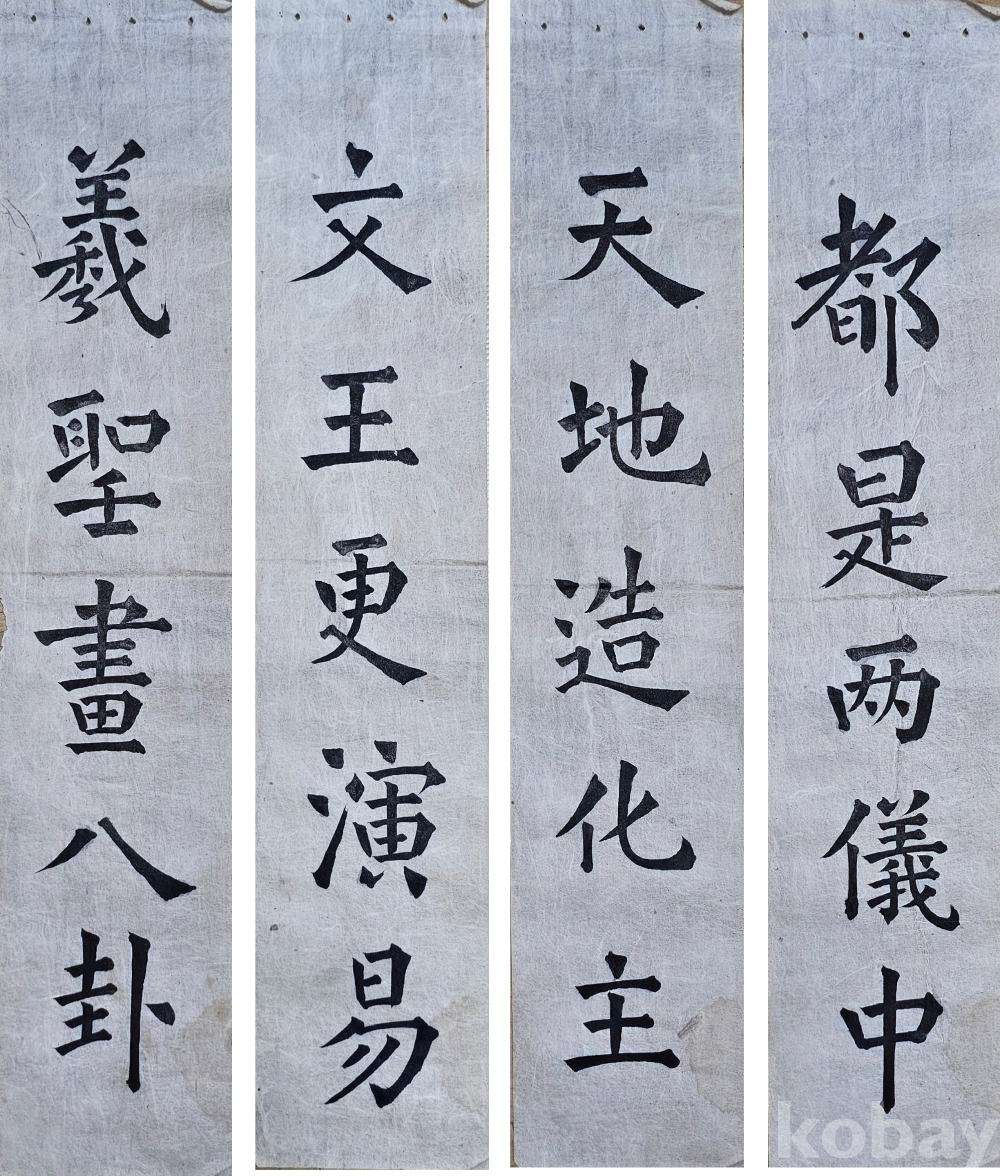 羲聖畫八卦
文王更演易
天地造化主
都是两儀中
kobay